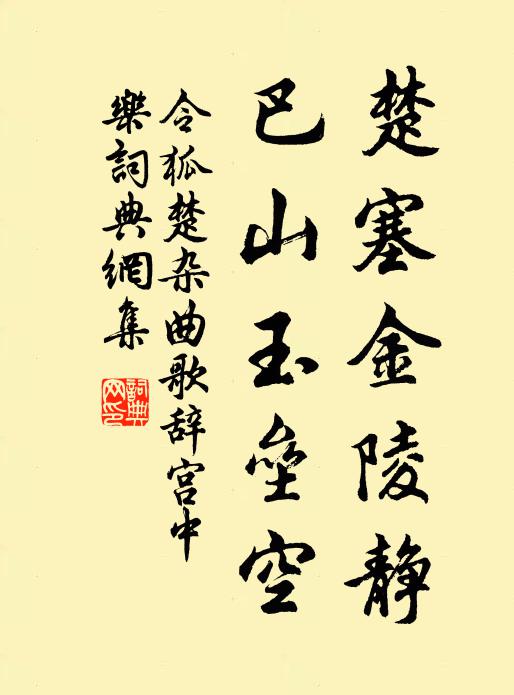 楚塞金陵静
巴山玉垒空
令狐楚杂曲歌辞宫中
樂詞典網集
詞典
网印